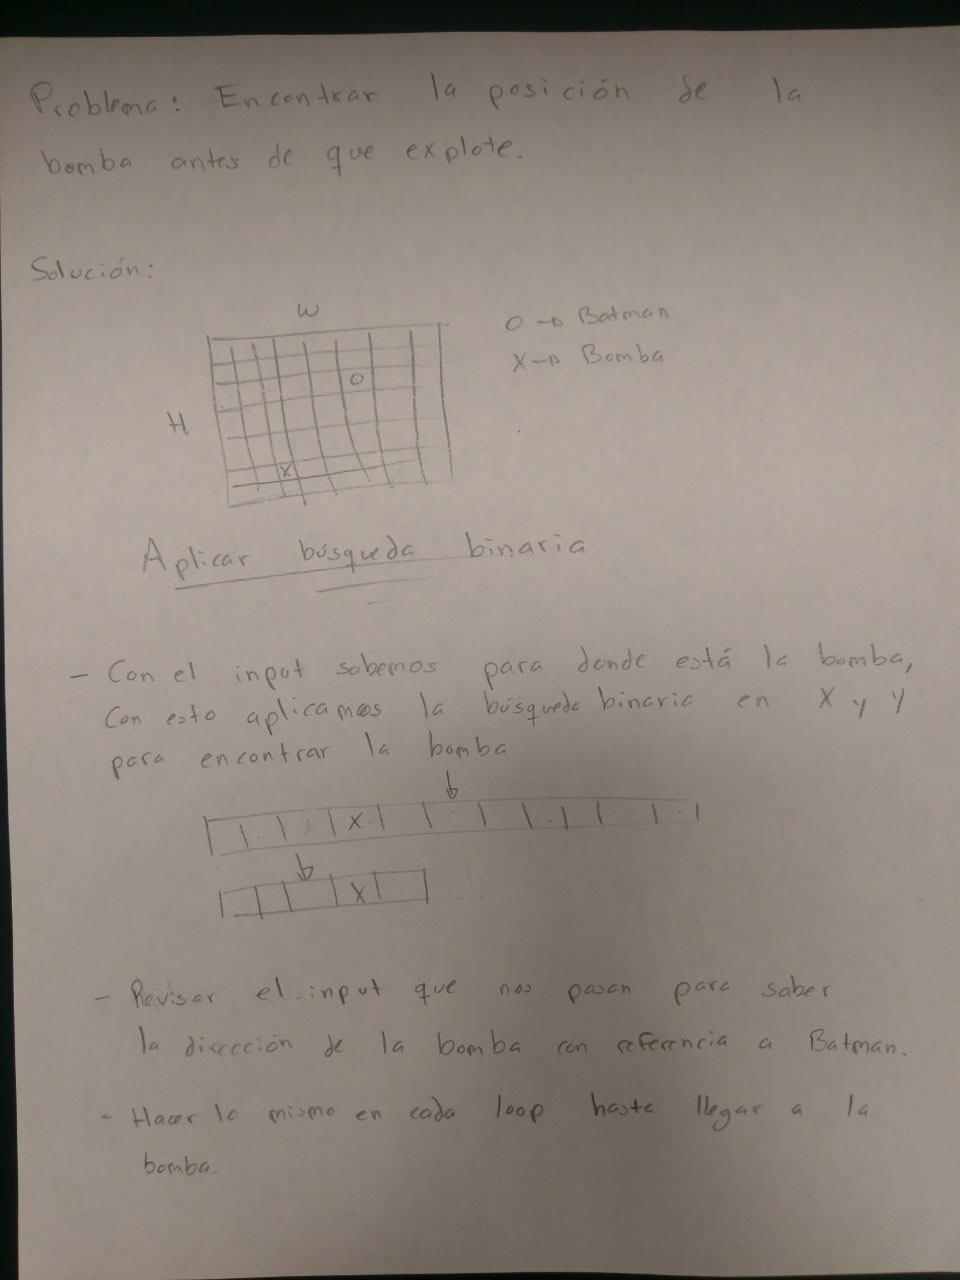 Problema: Encontrar la posición de la
bomba antes de que explote.
Solución:
W
O → Batman
X → Bomba
O
H
X
Aplicar búsqueda binaria
- Con el input sabemos para donde está la bomba,
Con esto aplicamos la búsqueda binaria en X y Y
para encontrar la bomba
X
X
- Revisar el input que nos pasan para saber
la dirección de la bomba con referencia a Batman.
- Hacer lo mismo en cada loop hasta llegar a la
bomba.